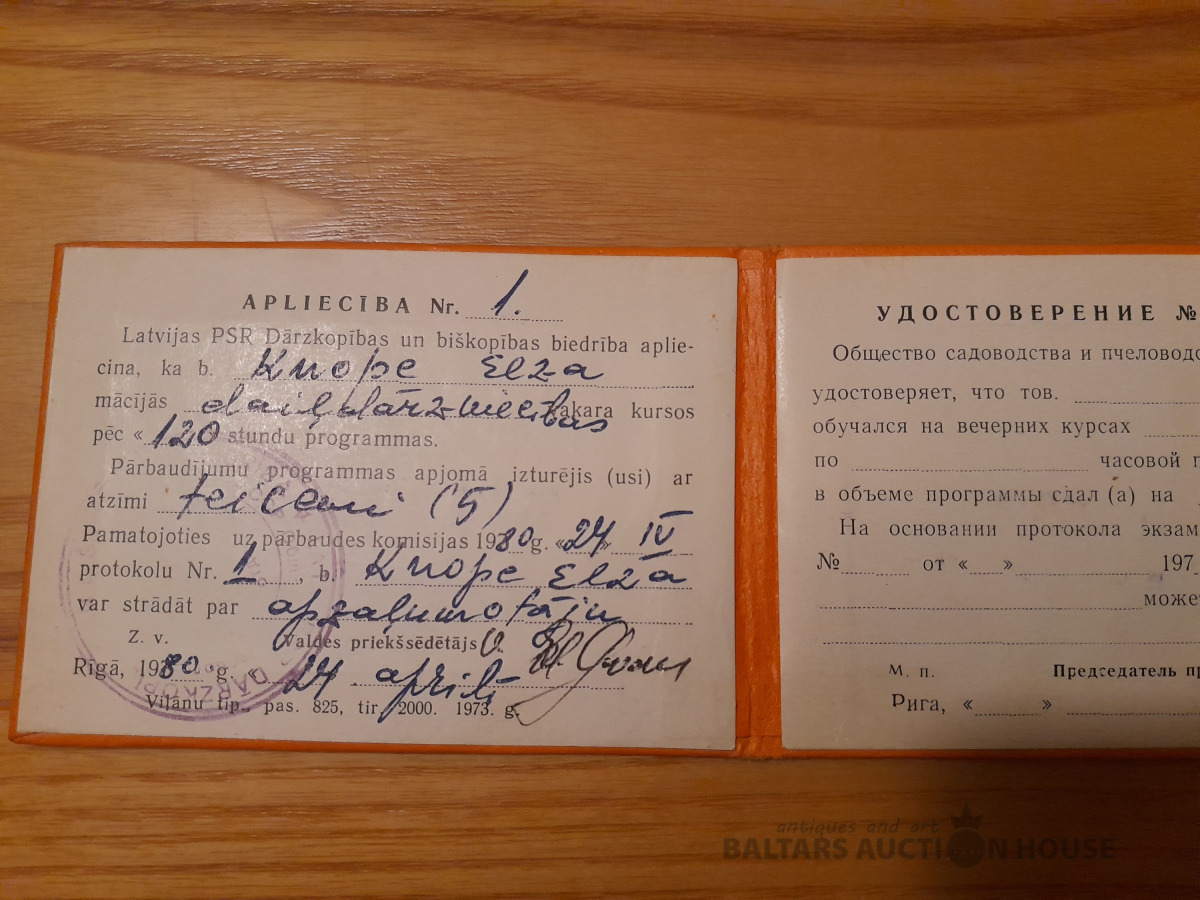 APLIECĪBA Nr. 1.
Latvijas PSR Dārzkopības un biškopības biedrība aplie-
cina, ka b. Knope Elza
mācījās daiļdārzniecības vakara kursos
pēc «120 stundu programmas.
Pārbaudījumu programmas apjomā izturējis (usi) ar
atzīmi teicami (5)
Pamatojoties uz pārbaudes komisijas 1980 g. «24» IV
protokolu Nr. 1, b. Knope Elza
var strādāt par apzaļumotāju
Z. v. Valdes priekšsēdētājs
Rīgā, 1980 g. 24 aprīlī
Viļānu tip., pas. 825, tir. 2000. 1973. g.
DĀRZKOPĪ
УДОСТОВЕРЕНИЕ №
Общество садоводства и пчеловодс
удостоверяет, что тов.
обучался на вечерних курсах
по часовой п
в объеме программы сдал (а) на
На основании протокола экзам
№ от « » 197
може
М. п. Председатель пр
Рига, « »
antiques and art
BALTARS AUCTION HOUSE